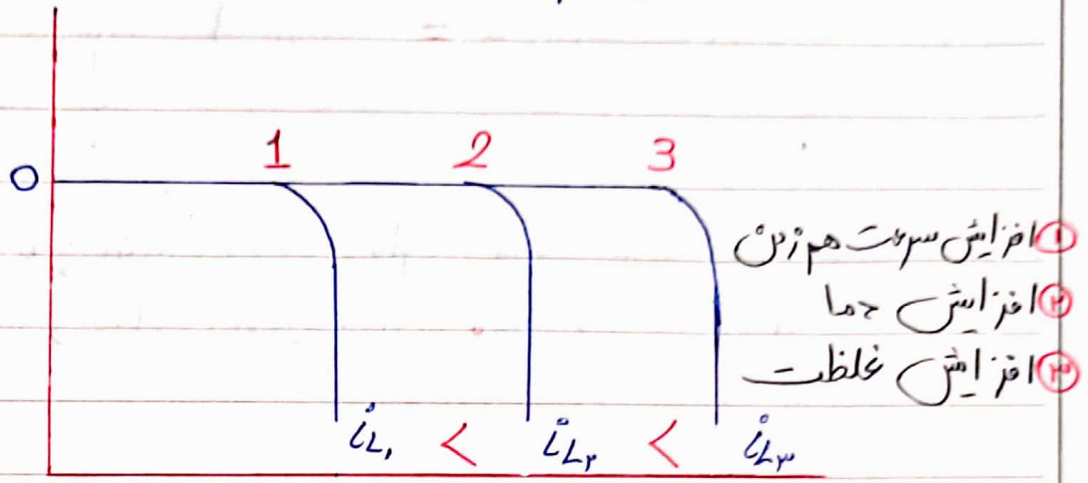 1 2 3
0
① افزایش سرعت هم زدن
② افزایش دما
③ افزایش غلظت
iL₁ < iL₂ < iL₃